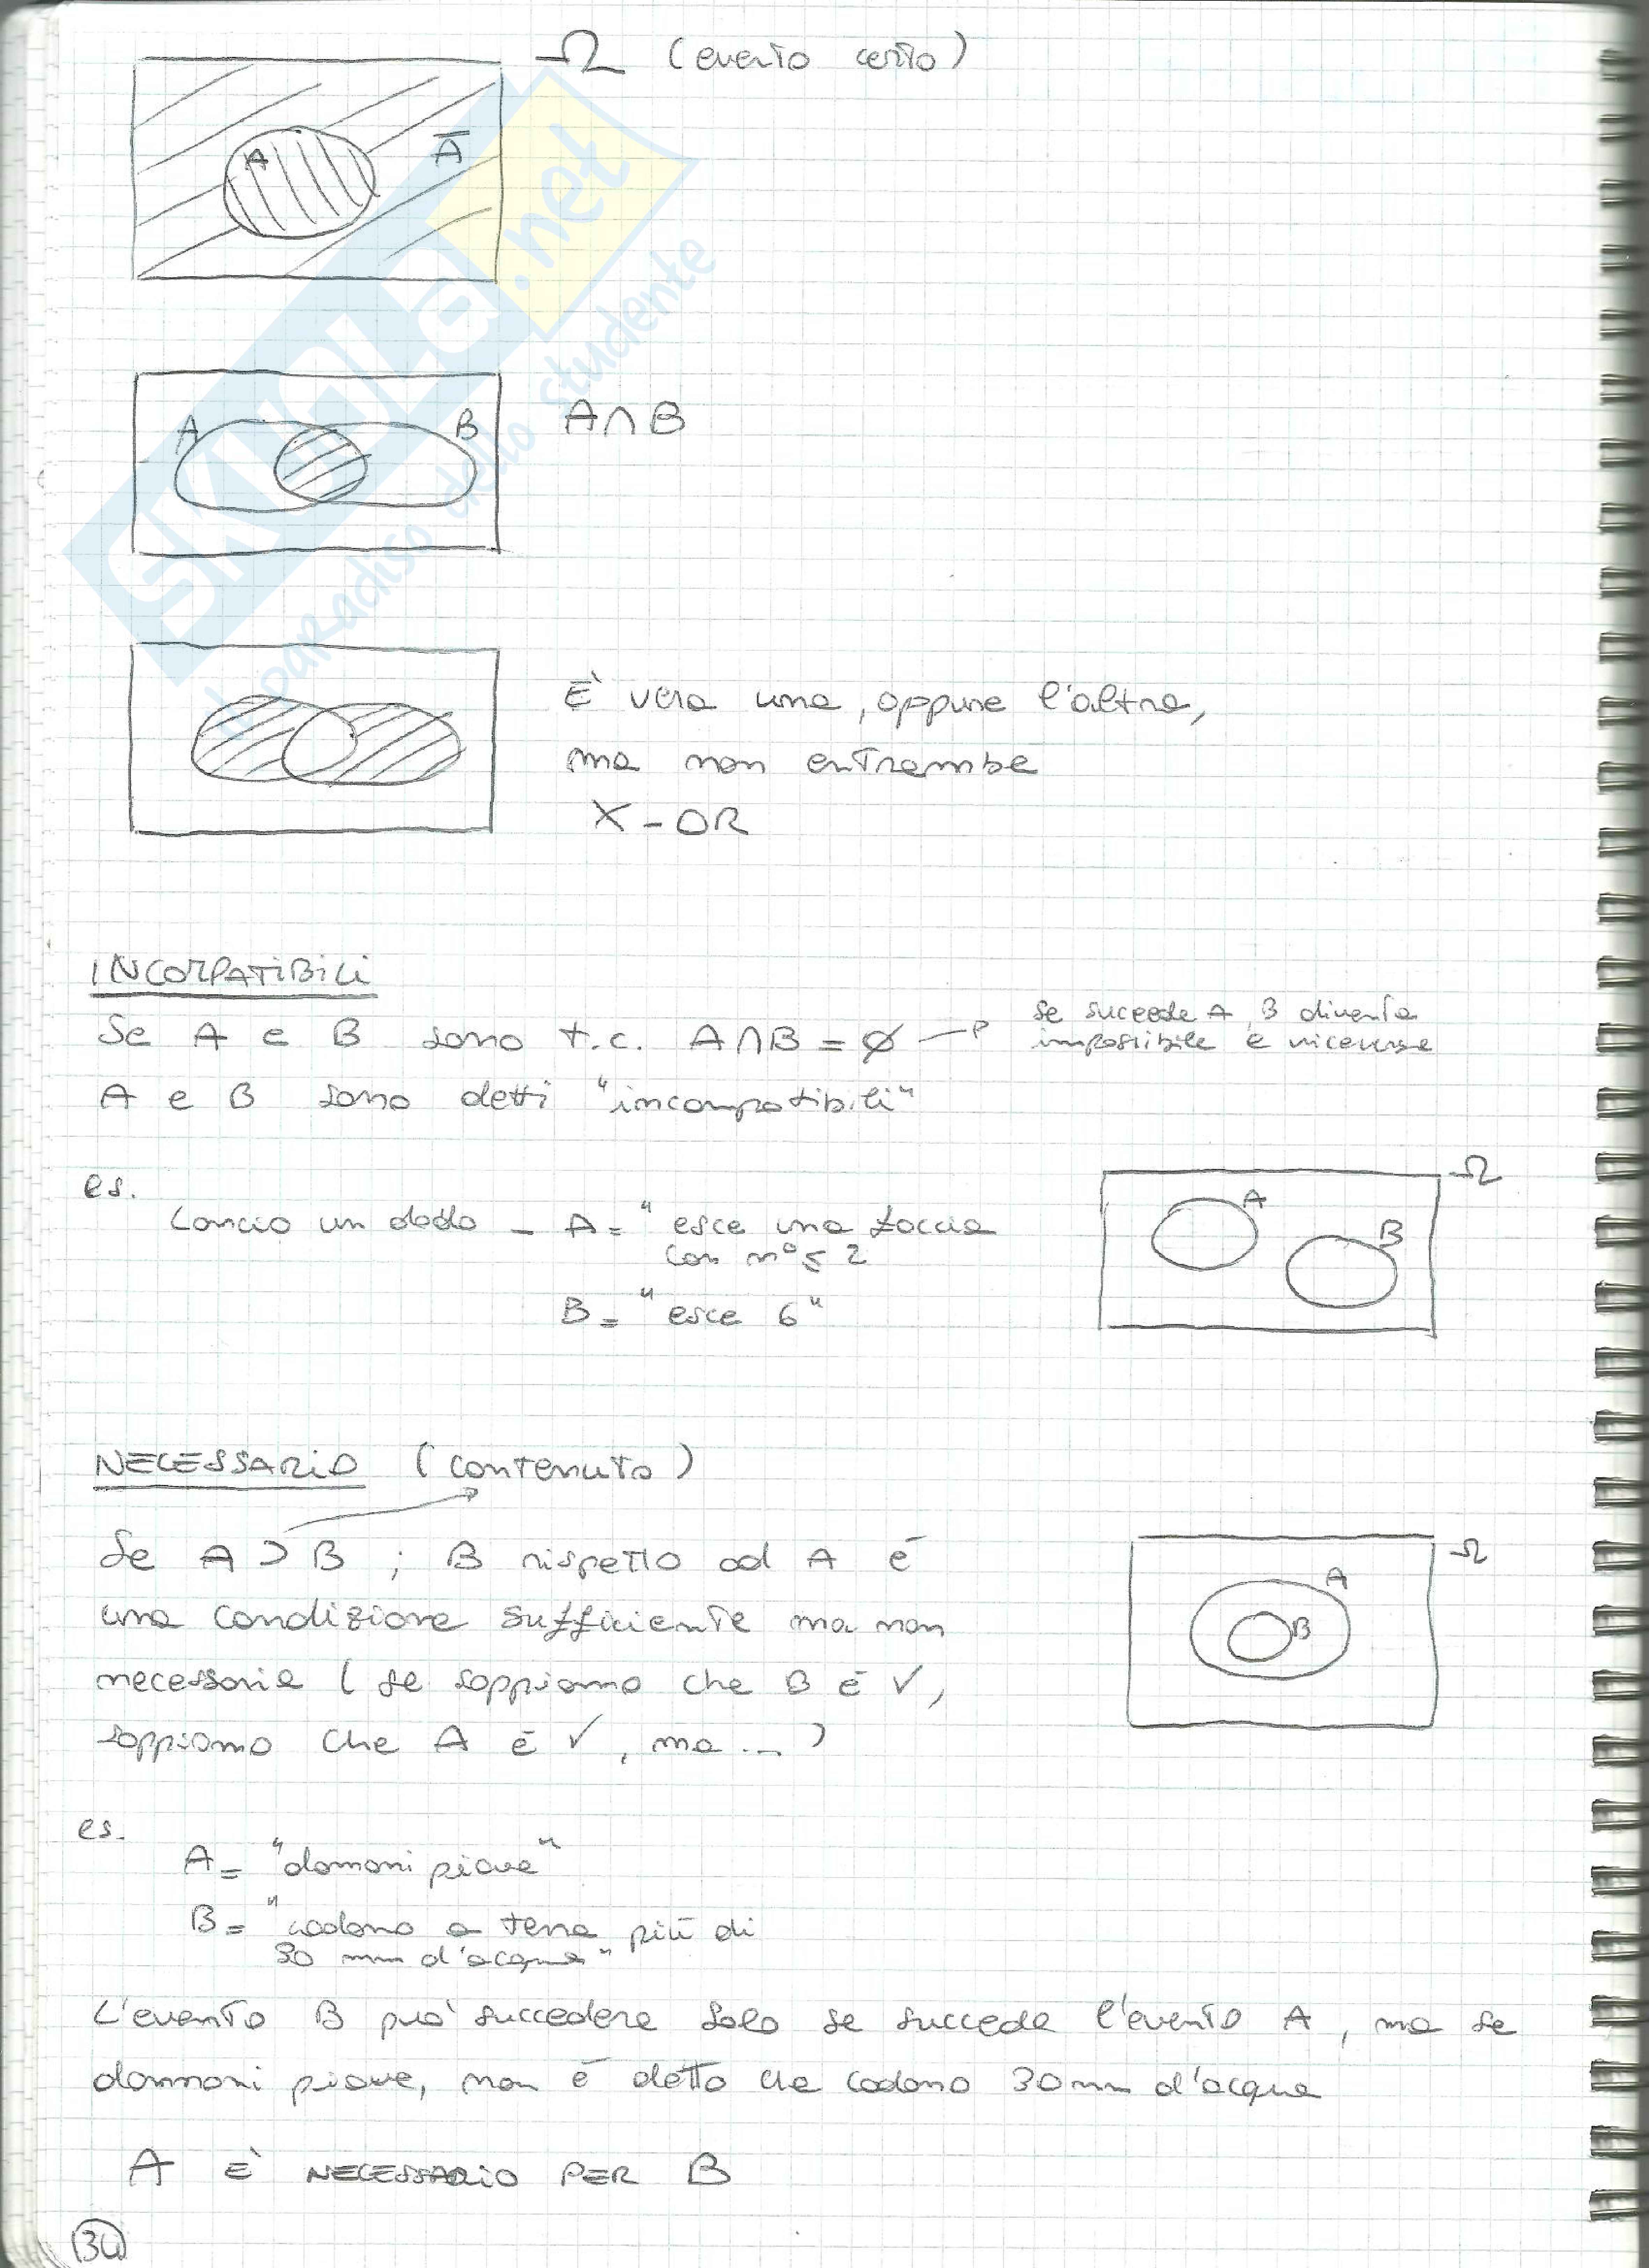 Ω (evento certo)
A Ā
A B A∩B
È vera una, oppure l'altra,
ma non entrambe
X-OR
SKUOLA.net
il paradiso dello studente
INCOMPATIBILI
Se A e B sono t.c. A∩B = ∅ → se succede A, B diventa
impossibile e viceversa
A e B sono detti "incompatibili"
es.
Lancio un dado - A = "esce una faccia
con n° ≤ 2
B = "esce 6"
Ω
A
B
NECESSARIO (contenuto)
Se A ⊃ B ; B rispetto ad A è
una condizione sufficiente ma non
necessaria (se sappiamo che B è ✓,
sappiamo che A è ✓, ma ... )
Ω
A
B
es.
A = "domani piove"
B = "cadono a terra più di
30 mm d'acqua"
L'evento B può succedere solo se succede l'evento A, ma se
domani piove, non è detto che cadono 30 mm d'acqua
A È NECESSARIO PER B